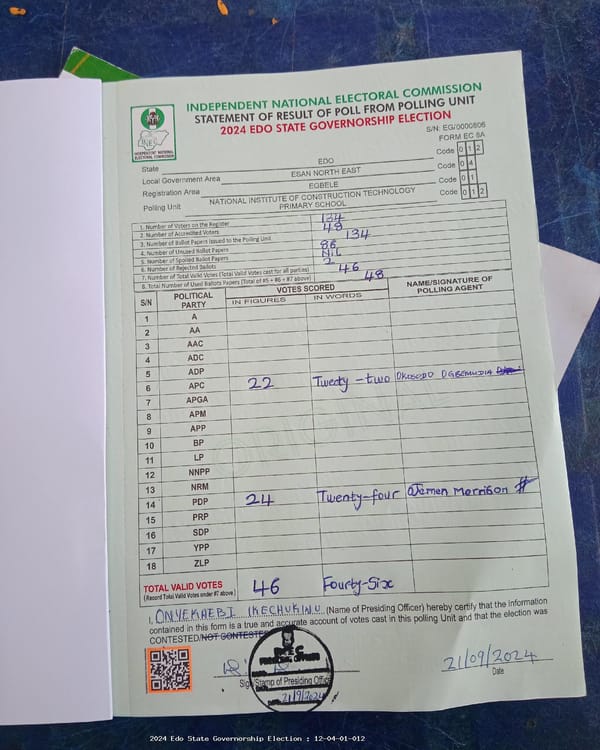 INDEPENDENT NATIONAL ELECTORAL COMMISSION
STATEMENT OF RESULT OF POLL FROM POLLING UNIT
2024 EDO STATE GOVERNORSHIP ELECTION
INEC
INDEPENDENT NATIONAL ELECTORAL COMMISSION
S/N: EG/0000806
FORM EC 8A
State EDO Code 0 1 2
Local Government Area ESAN NORTH EAST Code 0 4
Registration Area EGBELE Code 0 1
Polling Unit NATIONAL INSTITUTE OF CONSTRUCTION TECHNOLOGY PRIMARY SCHOOL Code 0 1 2
1. Number of Voters on the Register 134
2. Number of Accredited Voters 48
3. Number of Ballot Papers Issued to the Polling Unit 134
4. Number of Unused Ballot Papers 86
5. Number of Spoiled Ballot Papers NIL
6. Number of Rejected Ballots 2
7. Number of Total Valid Votes (Total Valid Votes cast for all parties) 46
8. Total Number of Used Ballots Papers (Total of #5 + #6 + #7 above) 48
S/N POLITICAL PARTY VOTES SCORED NAME/SIGNATURE OF POLLING AGENT
IN FIGURES IN WORDS
1 A
2 AA
3 AAC
4 ADC
5 ADP
6 APC 22 Twedy-two OKOSODO OGBEMUDIA
7 APGA
8 APM
9 APP
10 BP
11 LP
12 NNPP
13 NRM
14 PDP 24 Twenty-four Ojemen Morrison
15 PRP
16 SDP
17 YPP
18 ZLP
TOTAL VALID VOTES 46 Fourty-Six
(Record Total Valid Votes under #7 above)
I, ONYEKAEBI IKECHUKWU (Name of Presiding Officer) hereby certify that the information
contained in this form is a true and accurate account of votes cast in this polling Unit and that the election was
CONTESTED/NOT CONTESTED
INEC
PRESIDING OFFICER
DATE 21/9/2024
Sign/Stamp of Presiding Officer
21/09/2024
Date
2024 Edo State Governorship Election : 12-04-01-012